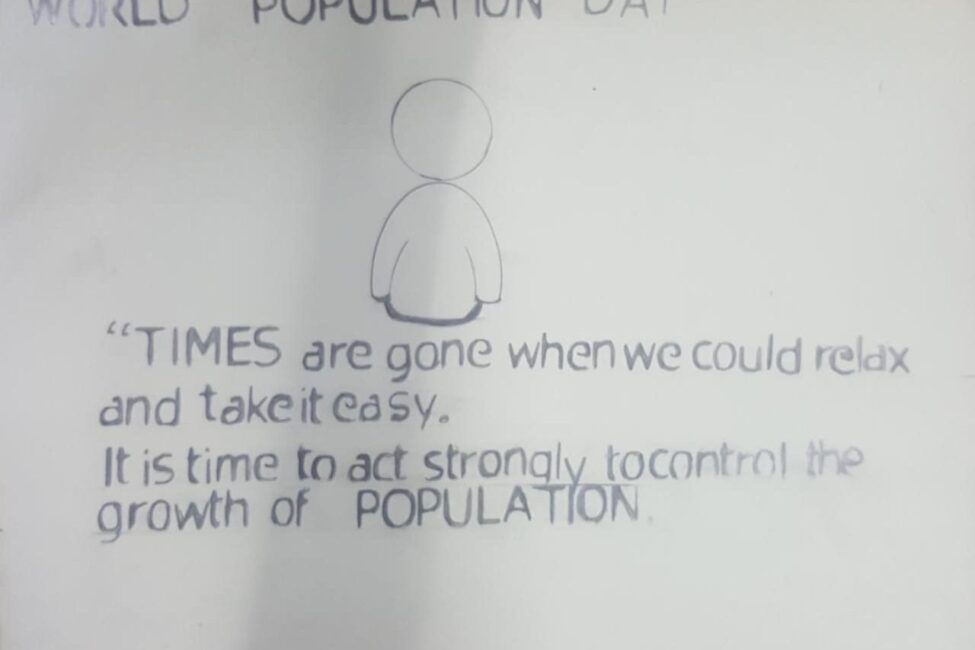 WORLD POPULATION DAY
“TIMES are gone when we could relax
and take it easy.
It is time to act strongly to control the
growth of POPULATION.